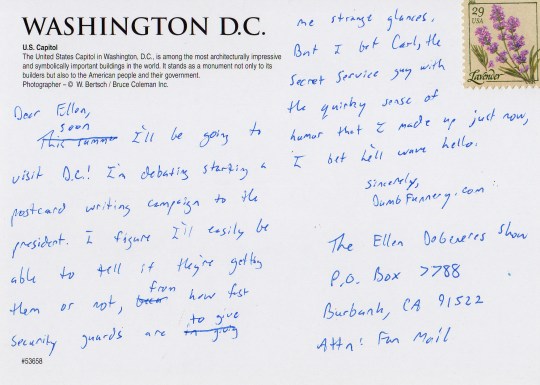 WASHINGTON D.C.
U.S. Capitol
The United States Capitol in Washington, D.C., is among the most architecturally impressive
and symbolically important buildings in the world. It stands as a monument not only to its
builders but also to the American people and their government.
Photographer – © W. Bertsch / Bruce Coleman Inc.
Dear Ellen,
soon
This summer I'll be going to
visit D.C.! I'm debating starting a
postcard writing campaign to the
president. I figure I'll easily be
able to tell if they're getting
from
them or not, how fast
to give
security guards are in giving
#53658
me strange glances.
But I bet Carl, the
Secret Service guy with
the quirky sense of
humor that I made up just now,
I bet he'll wave hello.
Sincerely,
DumbFunnery.com
The Ellen DeGeneres Show
P.O. Box 7788
Burbank, CA 91522
Attn: Fan Mail
29
USA
Lavender